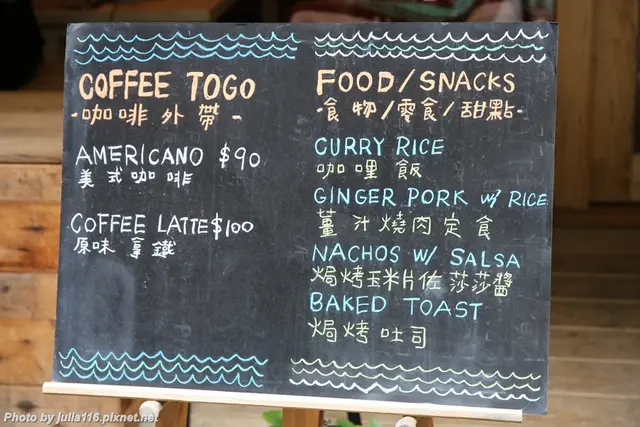 COFFEE TOGO
-咖啡外帶-
AMERICANO $90
美式咖啡
COFFEE LATTE $100
原味 拿鐵
FOOD/SNACKS
-食物/零食/甜點-
CURRY RICE
咖哩飯
GINGER PORK w/ RICE
薑汁燒肉定食
NACHOS W/ SALSA
焗烤玉米片佐莎莎醬
BAKED TOAST
焗烤吐司
Photo by julia116.pixnet.net